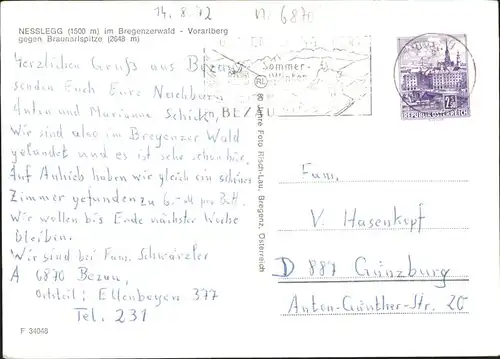 14.8.72 N. 6870
NESSLEGG (1500 m) im Bregenzerwald - Vorarlberg
gegen Braunarlspitze (2648 m)
Herzlichen Gruß aus Bezau
senden Euch Eure Nachbarn
Anton und Marianne Schick,
Wir sind also im Bregenzer Wald
gelandet und es ist sehr schön hier.
Auf Anhieb haben wir gleich ein schönes
Zimmer gefunden zu 6.-M per Bett.
Wir wollen bis Ende nächster Woche
bleiben.
Wir sind bei Fam. Schwärzler
A 6870 Bezau,
Ortsteil: Ellenbogen 377
Tel. 231
F 34048
Sommer-
BEZAU
80 Jahre Foto Risch-Lau, Bregenz, Österreich
REPUBLIK ÖSTERREICH
Fam.
V. Hasenkopf
D 887 Günzburg
Anton-Günther-Str. 20